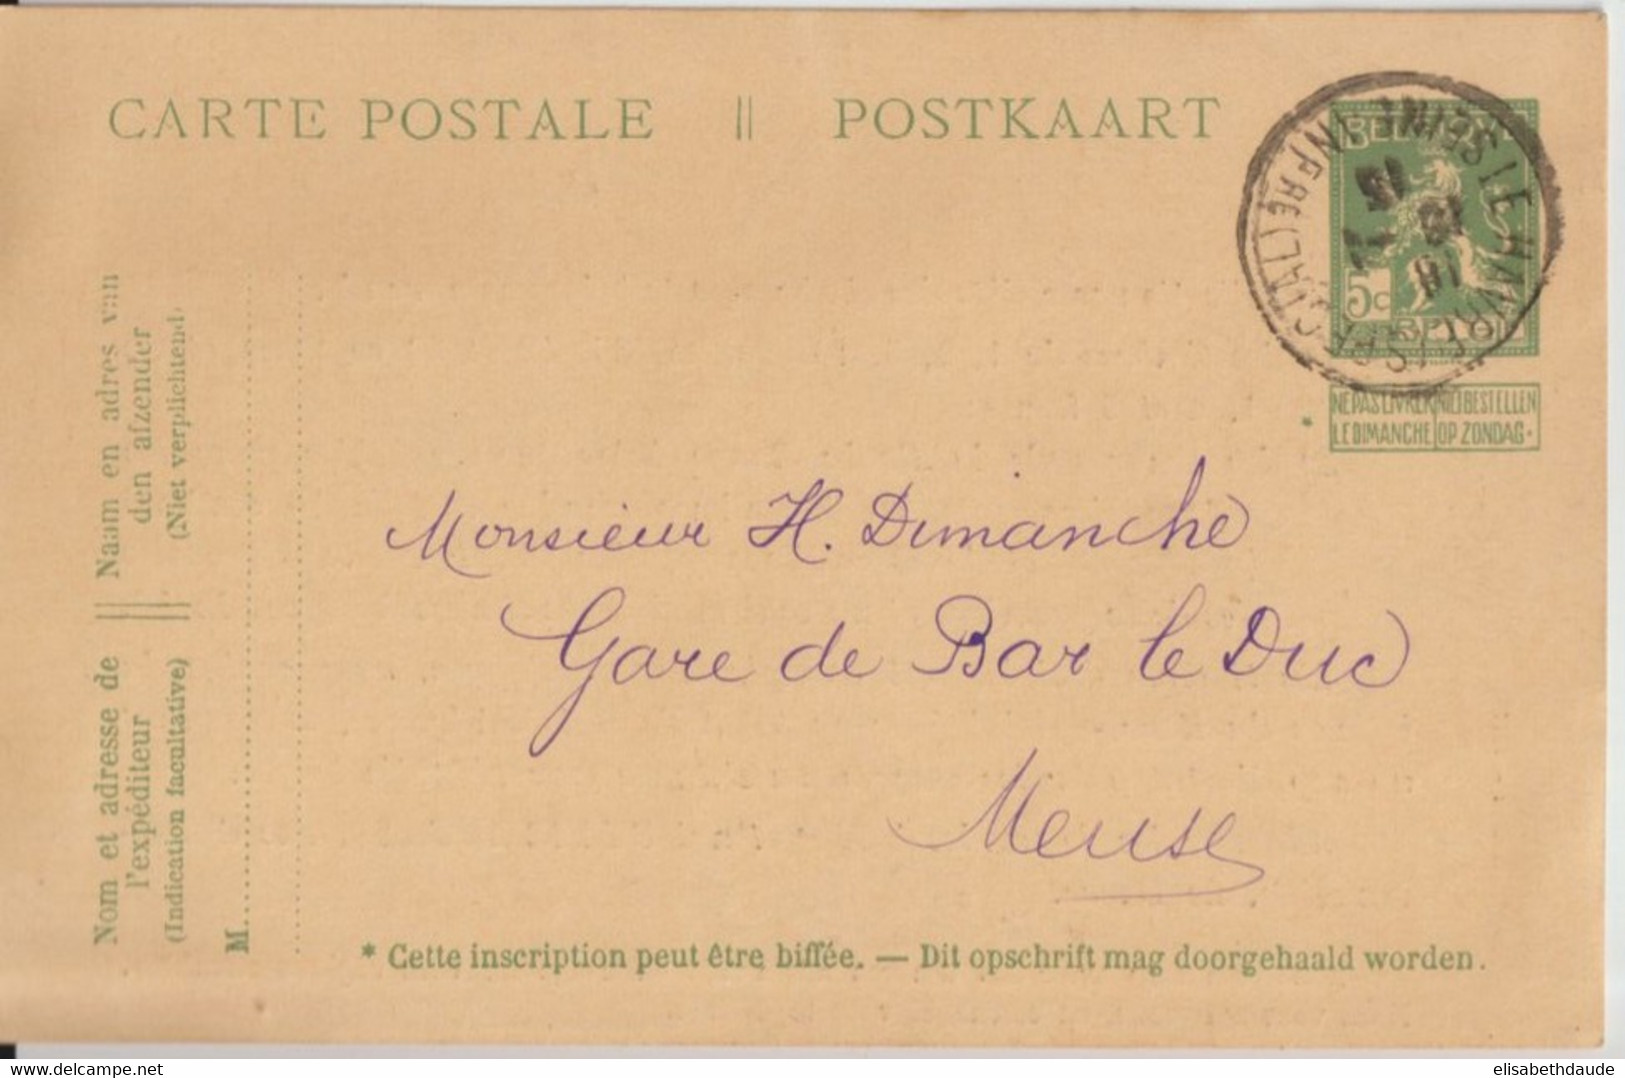 CARTE POSTALE || POSTKAART
5c
NE PAS LIVRER NIET BESTELLEN
LE DIMANCHE OP ZONDAG.
*
LE HAVRE (SPECIAL)
18
Naam en adres van
den afzender
(Niet verplichtend)
Nom et adresse de
l'expéditeur
(Indication facultative)
M.
Monsieur H. Dimanche
Gare de Bar le Duc
Meuse
* Cette inscription peut être biffée. — Dit opschrift mag doorgehaald worden.
delcampe.net
elisabethdaude